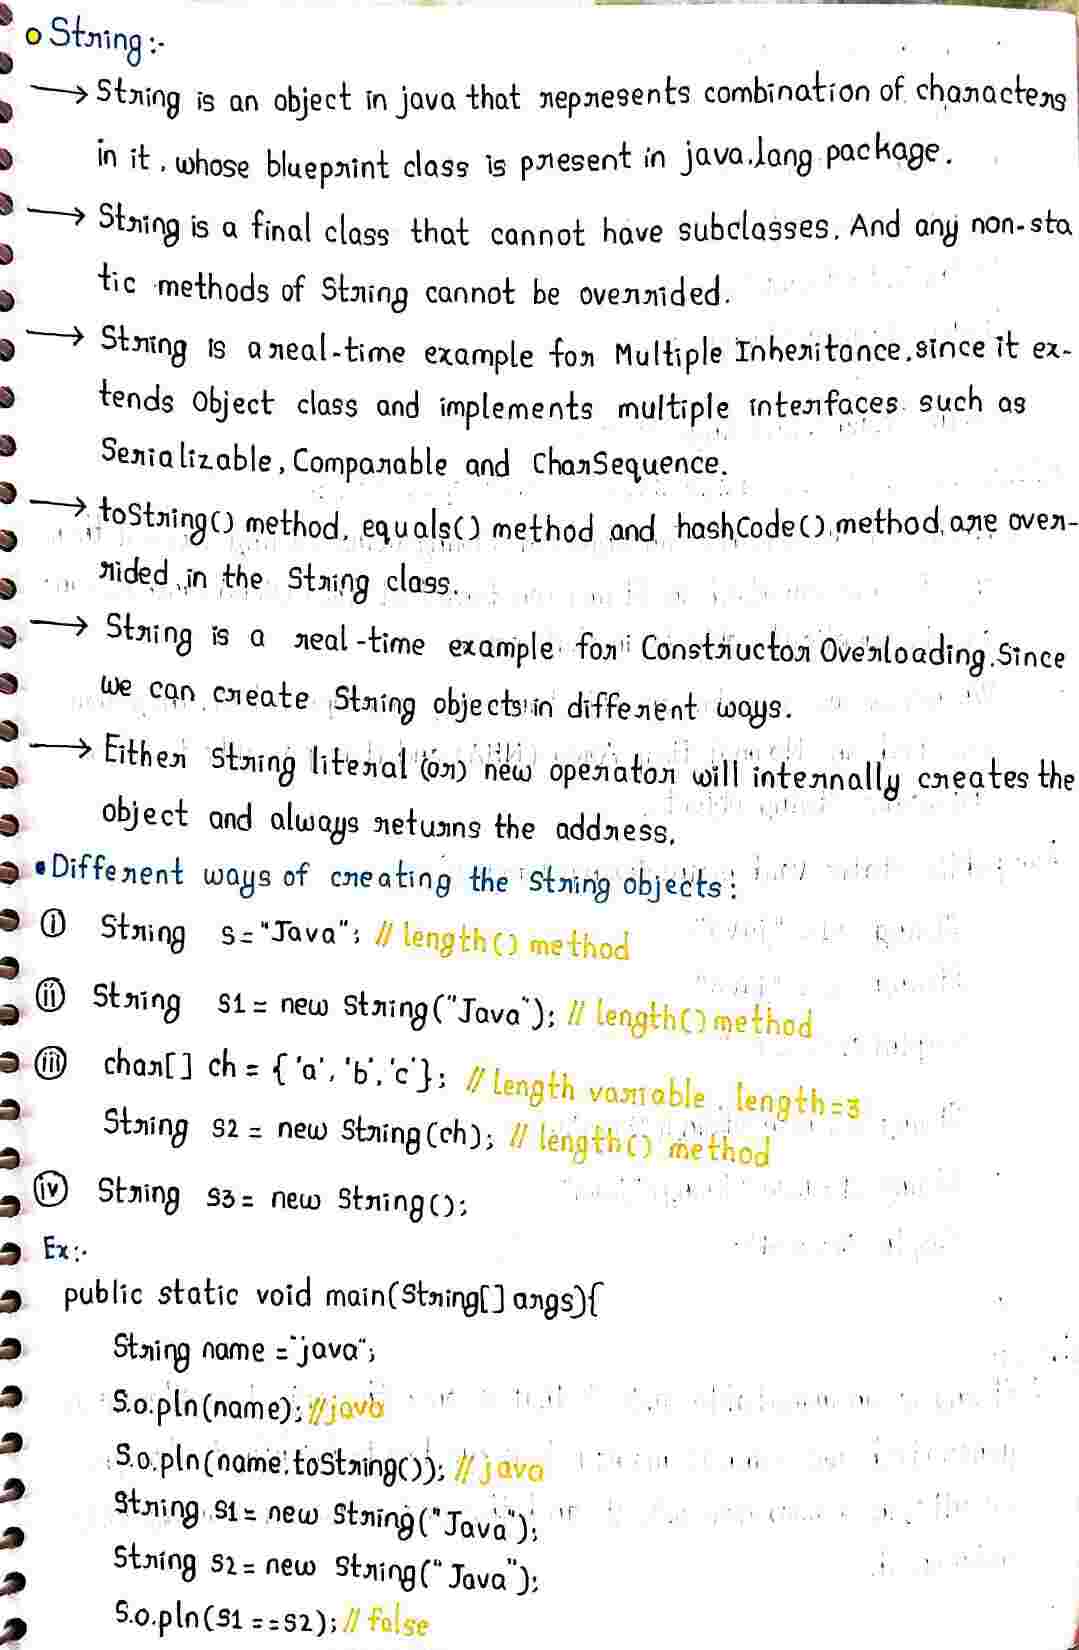 String :-
→ String is an object in java that represents combination of characters
in it, whose blueprint class is present in java.lang package.
→ String is a final class that cannot have subclasses. And any non-sta
tic methods of String cannot be overrided.
→ String is a real-time example for Multiple Inheritance, since it ex-
tends Object class and implements multiple interfaces such as
Serializable, Comparable and CharSequence.
→ toString() method, equals() method and hashCode() method are over-
rided in the String class.
→ String is a real-time example for Constructor Overloading. Since
we can create String objects in different ways.
→ Either String literal (or) new operator will internally creates the
object and always returns the address.
• Different ways of creating the String objects :
(i) String s = "Java"; // length() method
(ii) String s1 = new String("Java"); // length() method
(iii) char[] ch = {'a', 'b', 'c'}; // length variable. length=3
String s2 = new String(ch); // length() method
(iv) String s3 = new String();
Ex:-
public static void main(String[] args){
String name = "java";
S.o.pln(name); //java
S.o.pln(name.toString()); //java
String s1 = new String("Java");
String s2 = new String("Java");
S.o.pln(s1 == s2); // false